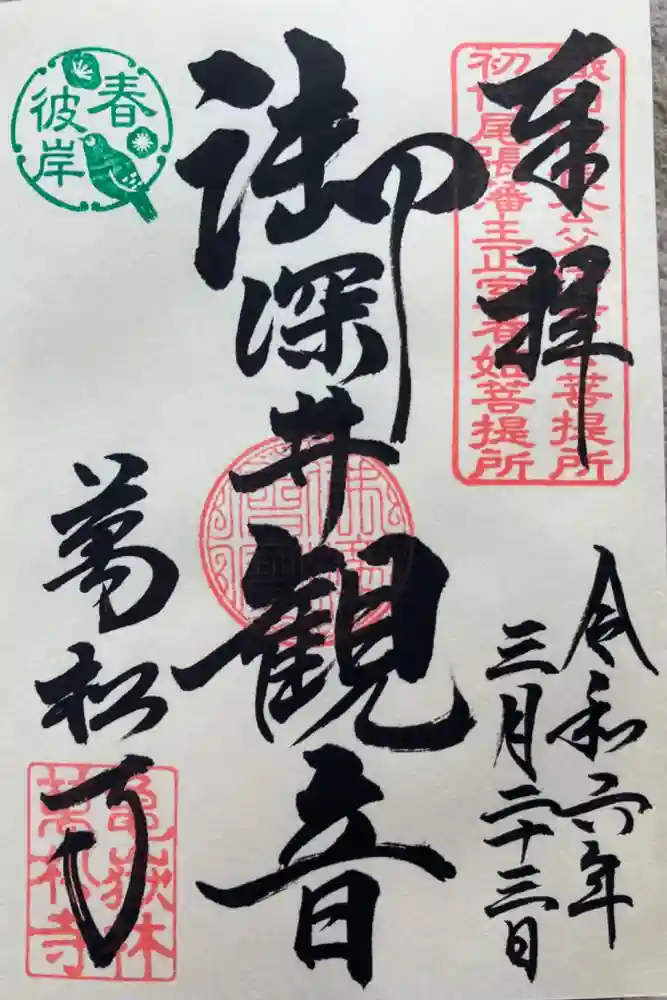 奉拝
初代尾張藩主正室春姫菩提所
令和六年
三月二十三日
御深井観音
春
彼岸
萬松寺
亀嶽林
萬松寺